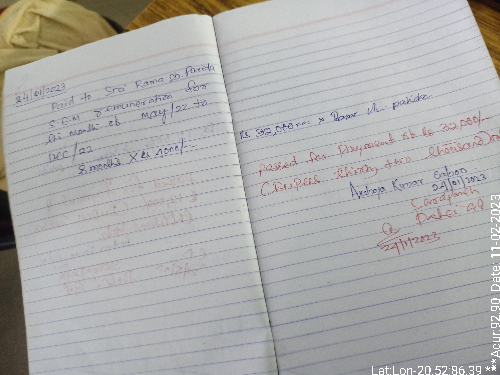 24/01/2023
Paid to Sri Rama ch. Parida
S.E.M remuneration for
the month of May/22 to
Dec/22
8 month X Rs 4000/-
Rs 32,000 = 00 Rama ch. parida
passed for Payment of Rs 32,000/-
(Rupees thirty two thousand) only
Kumar
24/01/2023
24/1/2023
Lat Lon-20.52:86.39 ***Acur:92.90, Date: 11-02-2023